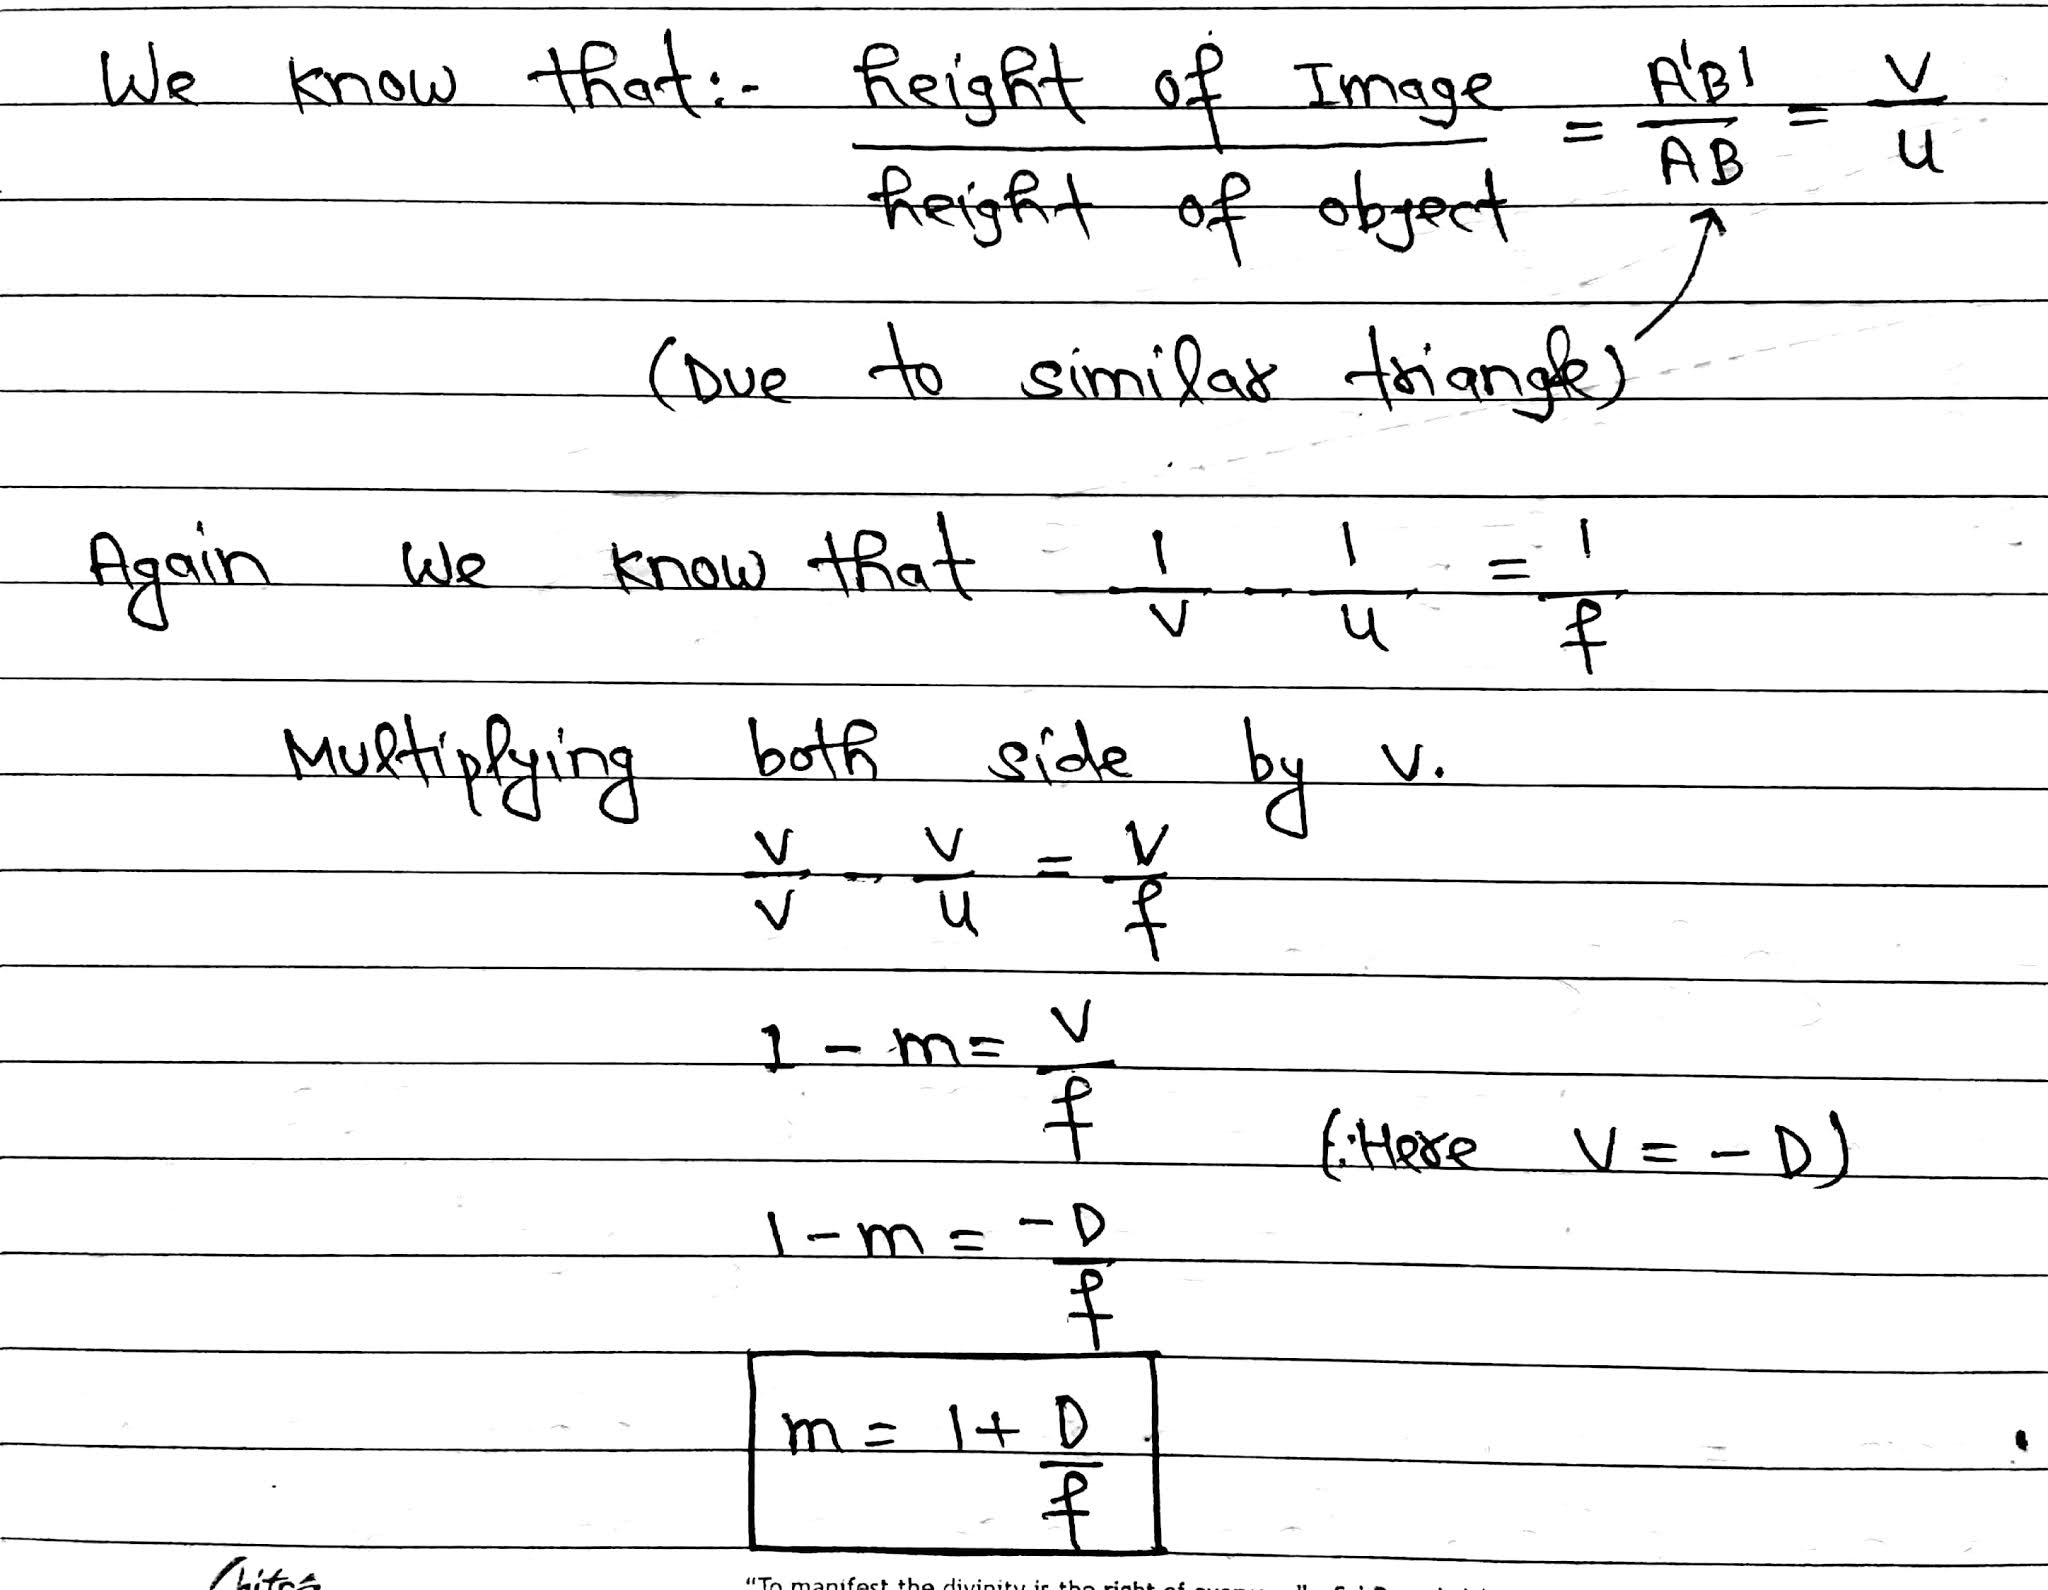 We know that:- height of Image / height of object = A'B' / AB = v / u
(Due to similar triangle)
Again we know that 1/v - 1/u = 1/f
Multiplying both side by v.
v/v - v/u = v/f
1 - m = v/f
(∵Here v = - D)
1 - m = -D/f
m = 1 + D/f
"To manifest the divinity is the right of